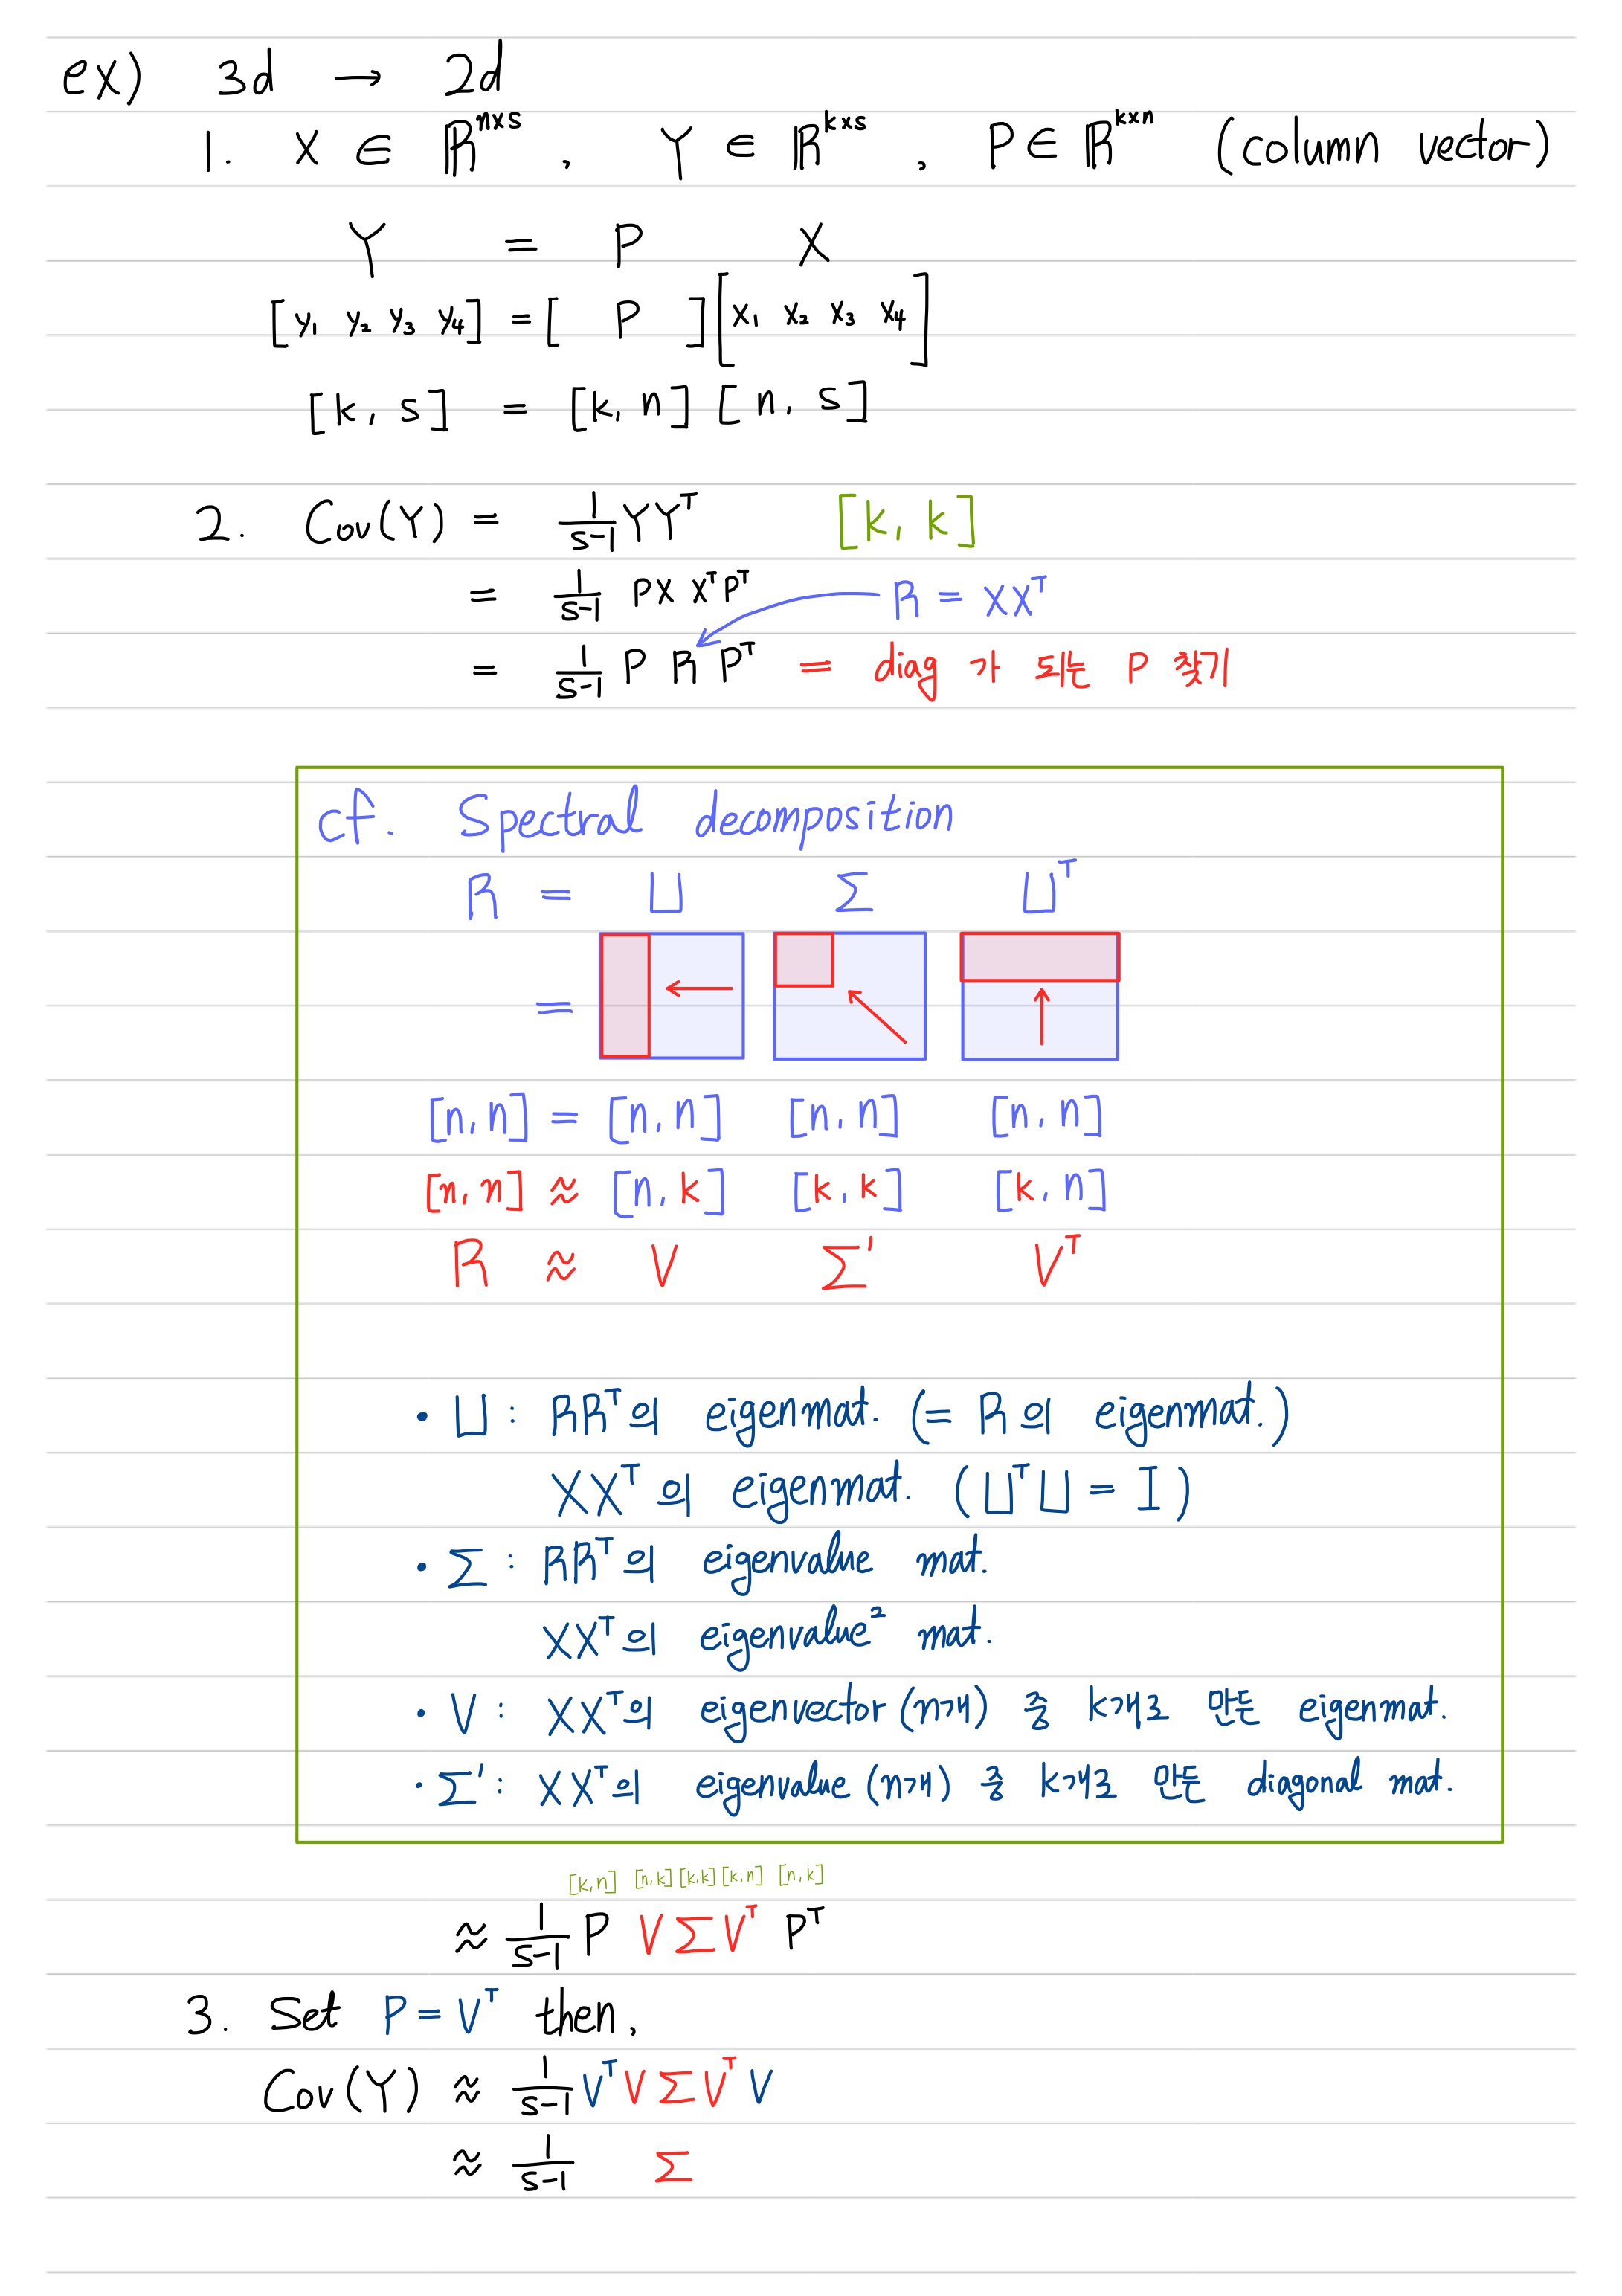 ex) 3d → 2d
1. X ∈ ℝⁿˣˢ , Y ∈ ℝᵏˣˢ , P ∈ ℝᵏˣⁿ (column vector)
Y = P X
[y₁ y₂ y₃ y₄] = [ P ] [x₁ x₂ x₃ x₄]
[k, s] = [k, n] [n, s]
2. Cov(Y) = 1/(s-1) YYᵀ [k, k]
= 1/(s-1) PX XᵀPᵀ R = XXᵀ
= 1/(s-1) P R Pᵀ = diag 가 되는 P 찾기
cf. Spectral decomposition
R = U Σ Uᵀ
=
[n, n] = [n, n] [n, n] [n, n]
[n, n] ≈ [n, k] [k, k] [k, n]
R ≈ V Σ' Vᵀ
• U : RRᵀ의 eigenmat. (= R의 eigenmat.)
XXᵀ의 eigenmat. (UᵀU = I)
• Σ : RRᵀ의 eigenvalue mat.
XXᵀ의 eigenvalue² mat.
• V : XXᵀ의 eigenvector (n개) 중 k개로 만든 eigenmat.
• Σ' : XXᵀ의 eigenvalue (n개) 중 k개로 만든 diagonal mat.
[k,n] [n,k] [k,k] [k,n] [n,k]
≈ 1/(s-1) P V Σ Vᵀ Pᵀ
3. Set P = Vᵀ then,
Cov(Y) ≈ 1/(s-1) Vᵀ V Σ Vᵀ V
≈ 1/(s-1) Σ